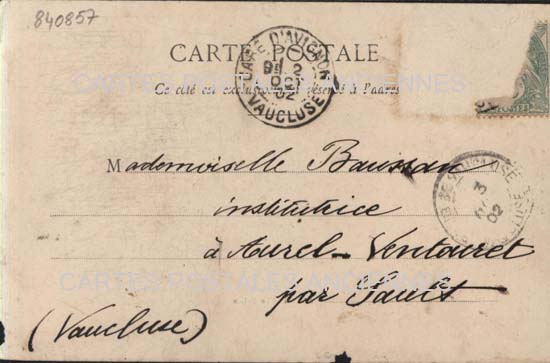 840857
CARTE POSTALE
GARE D'AVIGNON
2
OCT
02
VAUCLUSE
Ce côté est exclusivement réservé à l'adresse
Mademoiselle Baussan
institutrice
à Aurel-Ventouret
par Sault
(Vaucluse)
3
02
VAUCLUSE
CARTES POSTALES ANCIENNES
CARTES POSTALES ANCIENNES